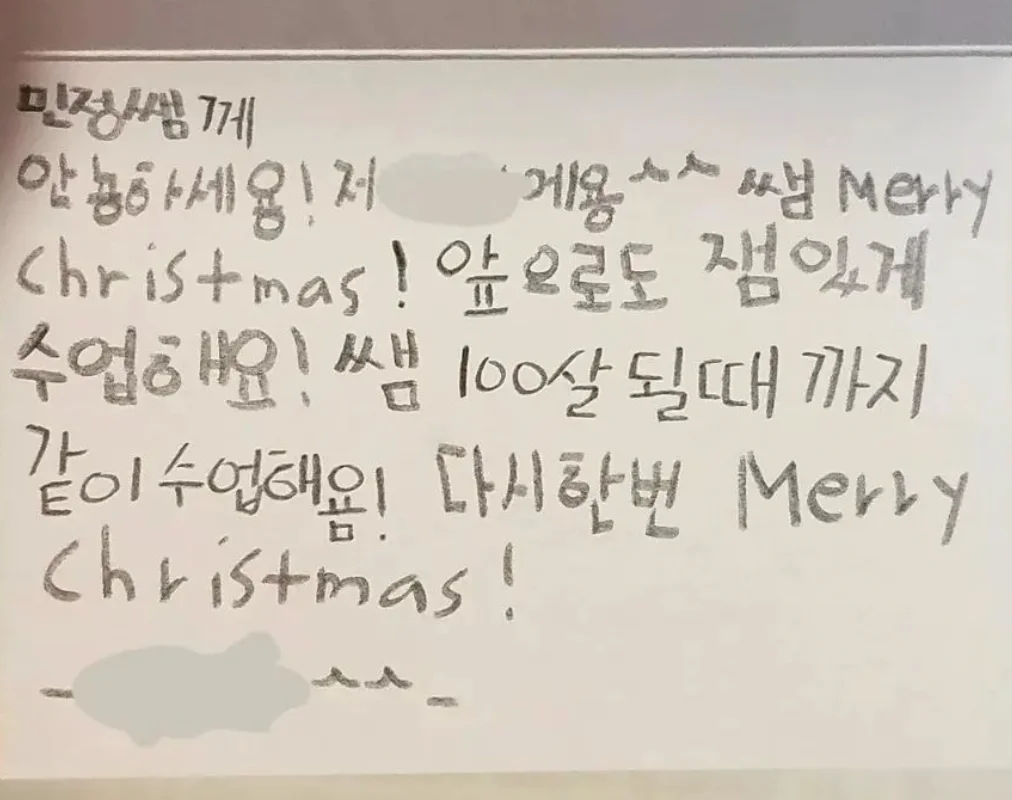 민정쌤께
안뇽하세욤! 저 게용^^ 쌤 Merry
Christmas! 앞으로도 잼있게
수업해요! 쌤 100살 될때 까지
같이 수업해욤! 다시한번 Merry
Christmas!
- ^^ -